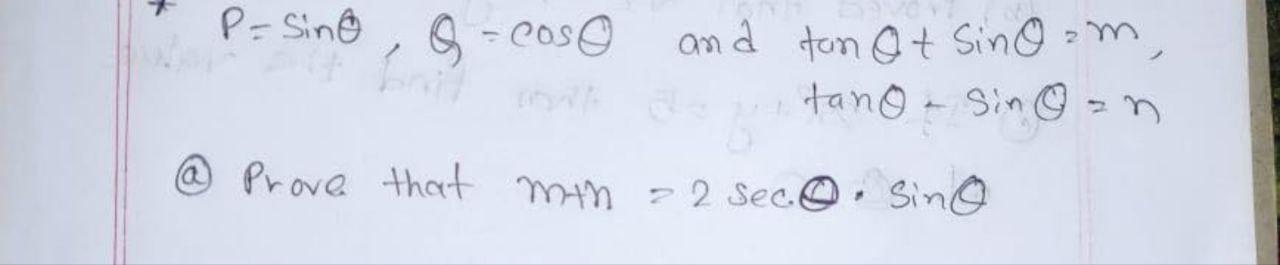 * P = Sinθ , Q = cosθ and tanθ + Sinθ = m,
tanθ - Sinθ = n
ⓐ Prove that m+n = 2 sec.θ . Sinθ